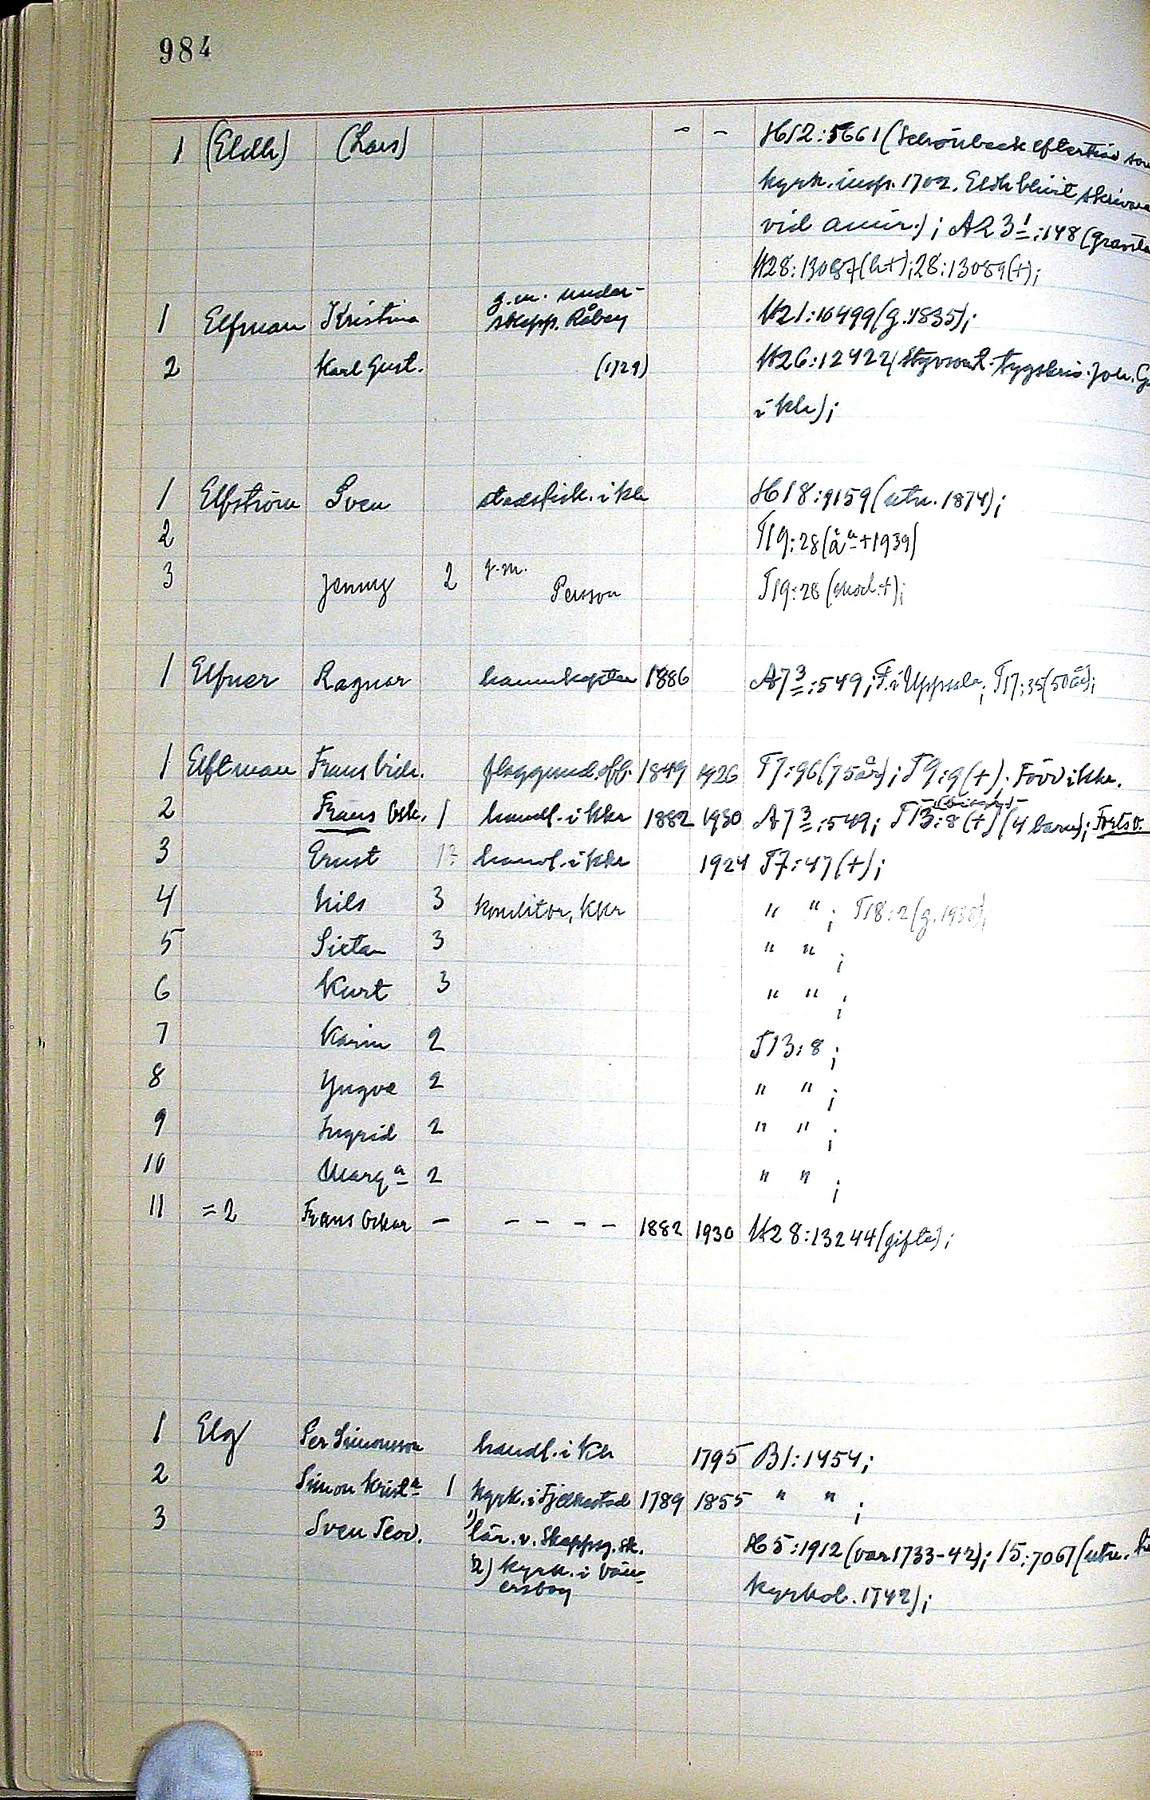 984
1 (Eldh) (Lars) - - H12:5661 (Schönbeck efterträd som
kyrk.insp. 1702. Eldh blivit skrivare
vid amir.); A23¹:148 (gravsten
U28:13087(h+); 28:13089(+);
1 Elfman Kristina g.m. under-
skepp. Råbey U21:10499(g.1835);
2 Karl Gust. (1729) U26:12422 tygskriv. Joh. G
i Kkr);
1 Elfström Sven stadsfisk. i Kkr H18:9159 (utn. 1874);
2 T19:28(åª+1939)
3 Jenny 2 g.m.
Persson T19:28 (mod.+);
1 Elfner Ragnar hamnkapten 1886 A7³:549; T. i Uppsala; T17:35(50år);
1 Elftman Frans Vich. flaggund.off. 1849 1926 T7:96(75år); T9:9(+). Född i Kkr.
2 Frans Osk. 1 handl. i Kkr 1882 1930 A7³:549; T13:8(+) (4 barn); Forts. v.
3 Ernst 1? handl. i Kkr 1924 T7:47(+);
4 Nils 3 konditor, Kkr " " ; T18:2(g.1938);
5 Sixten 3 " " ;
6 Kurt 3 " " ;
7 Karin 2 T13:8 ;
8 Yngve 2 " " ;
9 Ingrid 2 " " ;
10 Margª 2 " " ;
11 =2 Frans Oskar - - - - - 1882 1930 U28:13244(gifte);
1 Elg Per Simonsson handl. i Kkr 1795 B1:1454;
2 Simon Kristª 1 kyrk. i Fjelkestad 1789 1855 " " ;
3 Sven Teod. 1) lär. v. Skeppsg.sk. H5:1912 (var 1733-42); 15:7067 (utn. ti
2) kyrk. i Vän-
ersborg kyrkoh. 1742);